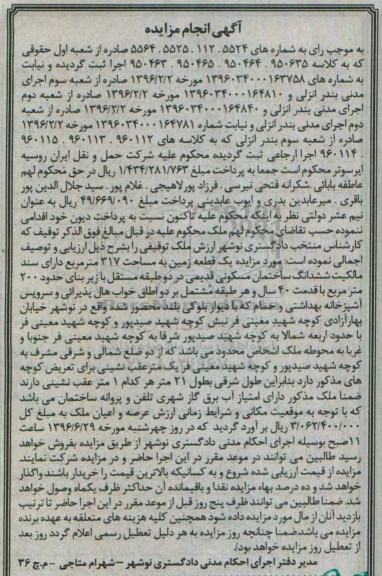 آگهی انجام مزایده
به موجب رای به شماره های ۵۵۲۴ . ۱۱۲ . ۵۵۲۵ . ۵۵۶۴ صادره از شعبه اول حقوقی
که به کلاسه ۹۵۰۶۳۵ . ۹۵۰۴۶۴ . ۹۵۰۴۶۵ . ۹۵۰۴۶۳ اجرا ثبت گردیده و نیابت
به شماره های ۱۳۹۶۰۳۴۰۰۰۱۶۳۷۵۸ مورخه ۱۳۹۶/۲/۲ صادره از شعبه سوم اجرای
مدنی بندر انزلی و ۱۳۹۶۰۳۴۰۰۰۱۶۴۸۱۰ مورخه ۱۳۹۶/۲/۲ صادره از شعبه دوم
اجرای مدنی بندر انزلی و ۱۳۹۶۰۳۴۰۰۰۱۶۴۸۴۰ مورخه ۱۳۹۶/۲/۲ صادره از شعبه
دوم اجرای مدنی بندر انزلی و نیابت شماره ۱۳۹۶۰۳۴۰۰۰۱۶۴۷۸۱ مورخه ۱۳۹۶/۲/۲
صادره از شعبه سوم بندر انزلی که به کلاسه های ۹۶۰۱۱۲ . ۹۶۰۱۱۳ . ۹۶۰۱۱۵
۹۶۰۱۱۴ اجرا ارجاعی ثبت گردیده محکوم علیه شرکت حمل و نقل ایران روسیه
ایرسوتر محکوم است جمعا به پرداخت مبلغ ۱/۴۳۴/۲۸۱/۷۶۳ ریال در حق محکوم لهم
عاطفه بابائی .شکرانه فتحی نیرسی . فرزاد پورلاهیجی . غلام پور . سید جلال الدین پور
باقری . میرعابدین بدری و ایوب عابدینی پرداخت مبلغ ۴۹/۶۶۹/۰۹۰ ریال به عنوان
نیم عشر دولتی نظر به اینکه محکوم علیه تاکنون نسبت به پرداخت دیون خود اقدامی
ننموده حسب تقاضای محکوم لهم ملک محکوم علیه در قبال مبالغ فوق الذکر توقیف که
کارشناس منتخب دادگستری نوشهر ارزش ملک توقیفی را بشرح ذیل ارزیابی و توصیف
اجمالی نموده است: مورد مزایده یک قطعه زمین به مساحت ۳۱۷ مترمربع دارای سند
مالکیت ششدانگ ساختمان مسکونی قدیمی در دو طبقه مستقل با زیر بنای حدود ۲۰۰
متر مربع با قدمت ۴۰ سال و هر طبقه مشتمل بر دو اطاق خواب هال پذیرائی و سرویس
آشپزخانه بهداشتی و حمام که با دیوار بلوکی بلند محصور شده واقع در نوشهر خیابان
بهارآزادی کوچه شهید معینی فر نبش کوچه شهید صیدپور و کوچه شهید معینی فر
با حدود اربعه شمالا به کوچه شهید صیدپور شرقا به کوچه شهید معینی فر جنوبا و
غربا به محوطه ملک اشخاص محدود می باشد که از دو ضلع شمالی و شرقی مشرف به
کوچه شهید صیدپور و کوچه شهید معینی فر یک متر عقب نشینی برای تعریض کوچه
های مذکور دارد بنابراین طول شرقی بطول ۲۱ متر هر کدام ۱ متر عقب نشینی دارند
ضمنا ملک مذکور دارای امتیاز آب برق گاز شهری تلفن و پروانه ساختمان می باشد
که با توجه به موقعیت مکانی و شرایط زمانی ارزش عرصه و اعیان ملک به مبلغ کل
۳/۰۶۲/۴۰۰/۰۰۰ ریال بر آورد گردید که در روز چهارشنبه مورخه ۱۳۹۶/۶/۲۹ ساعت
۱۱صبح بوسیله اجرای احکام مدنی دادگستری نوشهر از طریق مزایده بفروش خواهد
رسید طالبین می توانند در موعد مقرر در این اجرا حاضر و در مزایده شرکت نمایند
مزایده از قیمت ارزیابی شده شروع و به کسانیکه بالاترین قیمت را خریدار باشند واگذار
خواهد شد و ده درصد بهاء مزایده نقدا و باقیمانده آن حداکثر ظرف یکماه وصول خواهد
شد.ضمنا طالبین می توانند ظرف پنج روز قبل از موعد مقرر در این اجرا حاضر تا ترتیب
بازدید آنان از مال مورد مزایده داده شود همچنین کلیه هزینه های متعلقه به عهده برنده
مزایده می باشد.ضمنا چنانچه روز مزایده به هر دلیل تعطیل رسمی اعلام گردد روز بعد
از تعطیل روز مزایده خواهد بود/.
مدیر دفتر اجرای احکام مدنی دادگستری نوشهر –شهرام متاجی –م.چ ۳۶